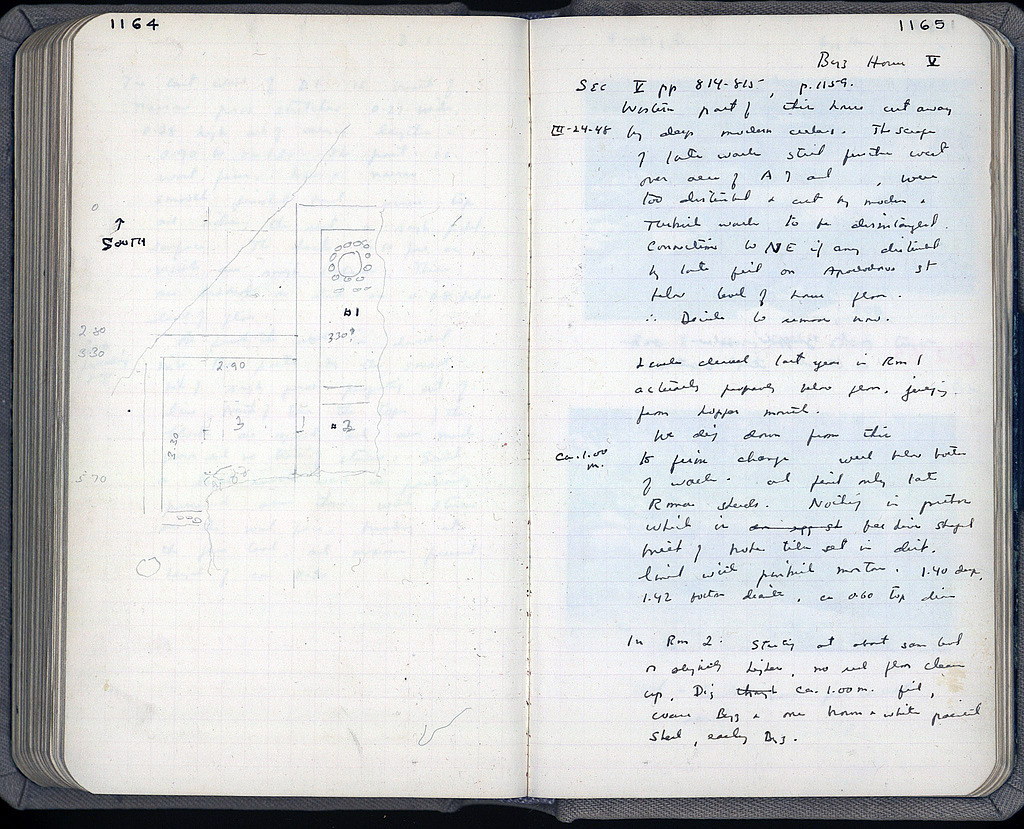 1164
SOUTH
0
2.80
3.30
5.70
#1
330?
2.90
3.30
3
#2
1165
Byz House V
SEC V pp 814-815, p. 1159.
III-24-48
Western part of this house cut away
by deep modern cellars. The scraps
of late walls still further west
over area of A 7 and , were
too disturbed & cut by modern &
Turkish walls to be disentangled.
Connections to NE if any disturbed
by late fill on Apostolous st
below level of house floor.
∴ Decide to remove now.
Levels cleared last year in Rm 1
actually properly below floor, judging
from hopper mouth.
We dig down from this
ca. 1.00 m.
to firm change well below bottom
of walls. and find only late
Roman sherds. Nothing in pithos
which is shaped
pit of broken tiles set in dirt.
lined with mortar. 1.40 deep,
1.42 bottom diam, ca 0.60 top diam
In Rm 2. Starting at about same level
or slightly higher, no real floor clean
up, Dig ca. 1.00 m. fill,
coarse Byz & one brown & white painted
sherd, early Byz.